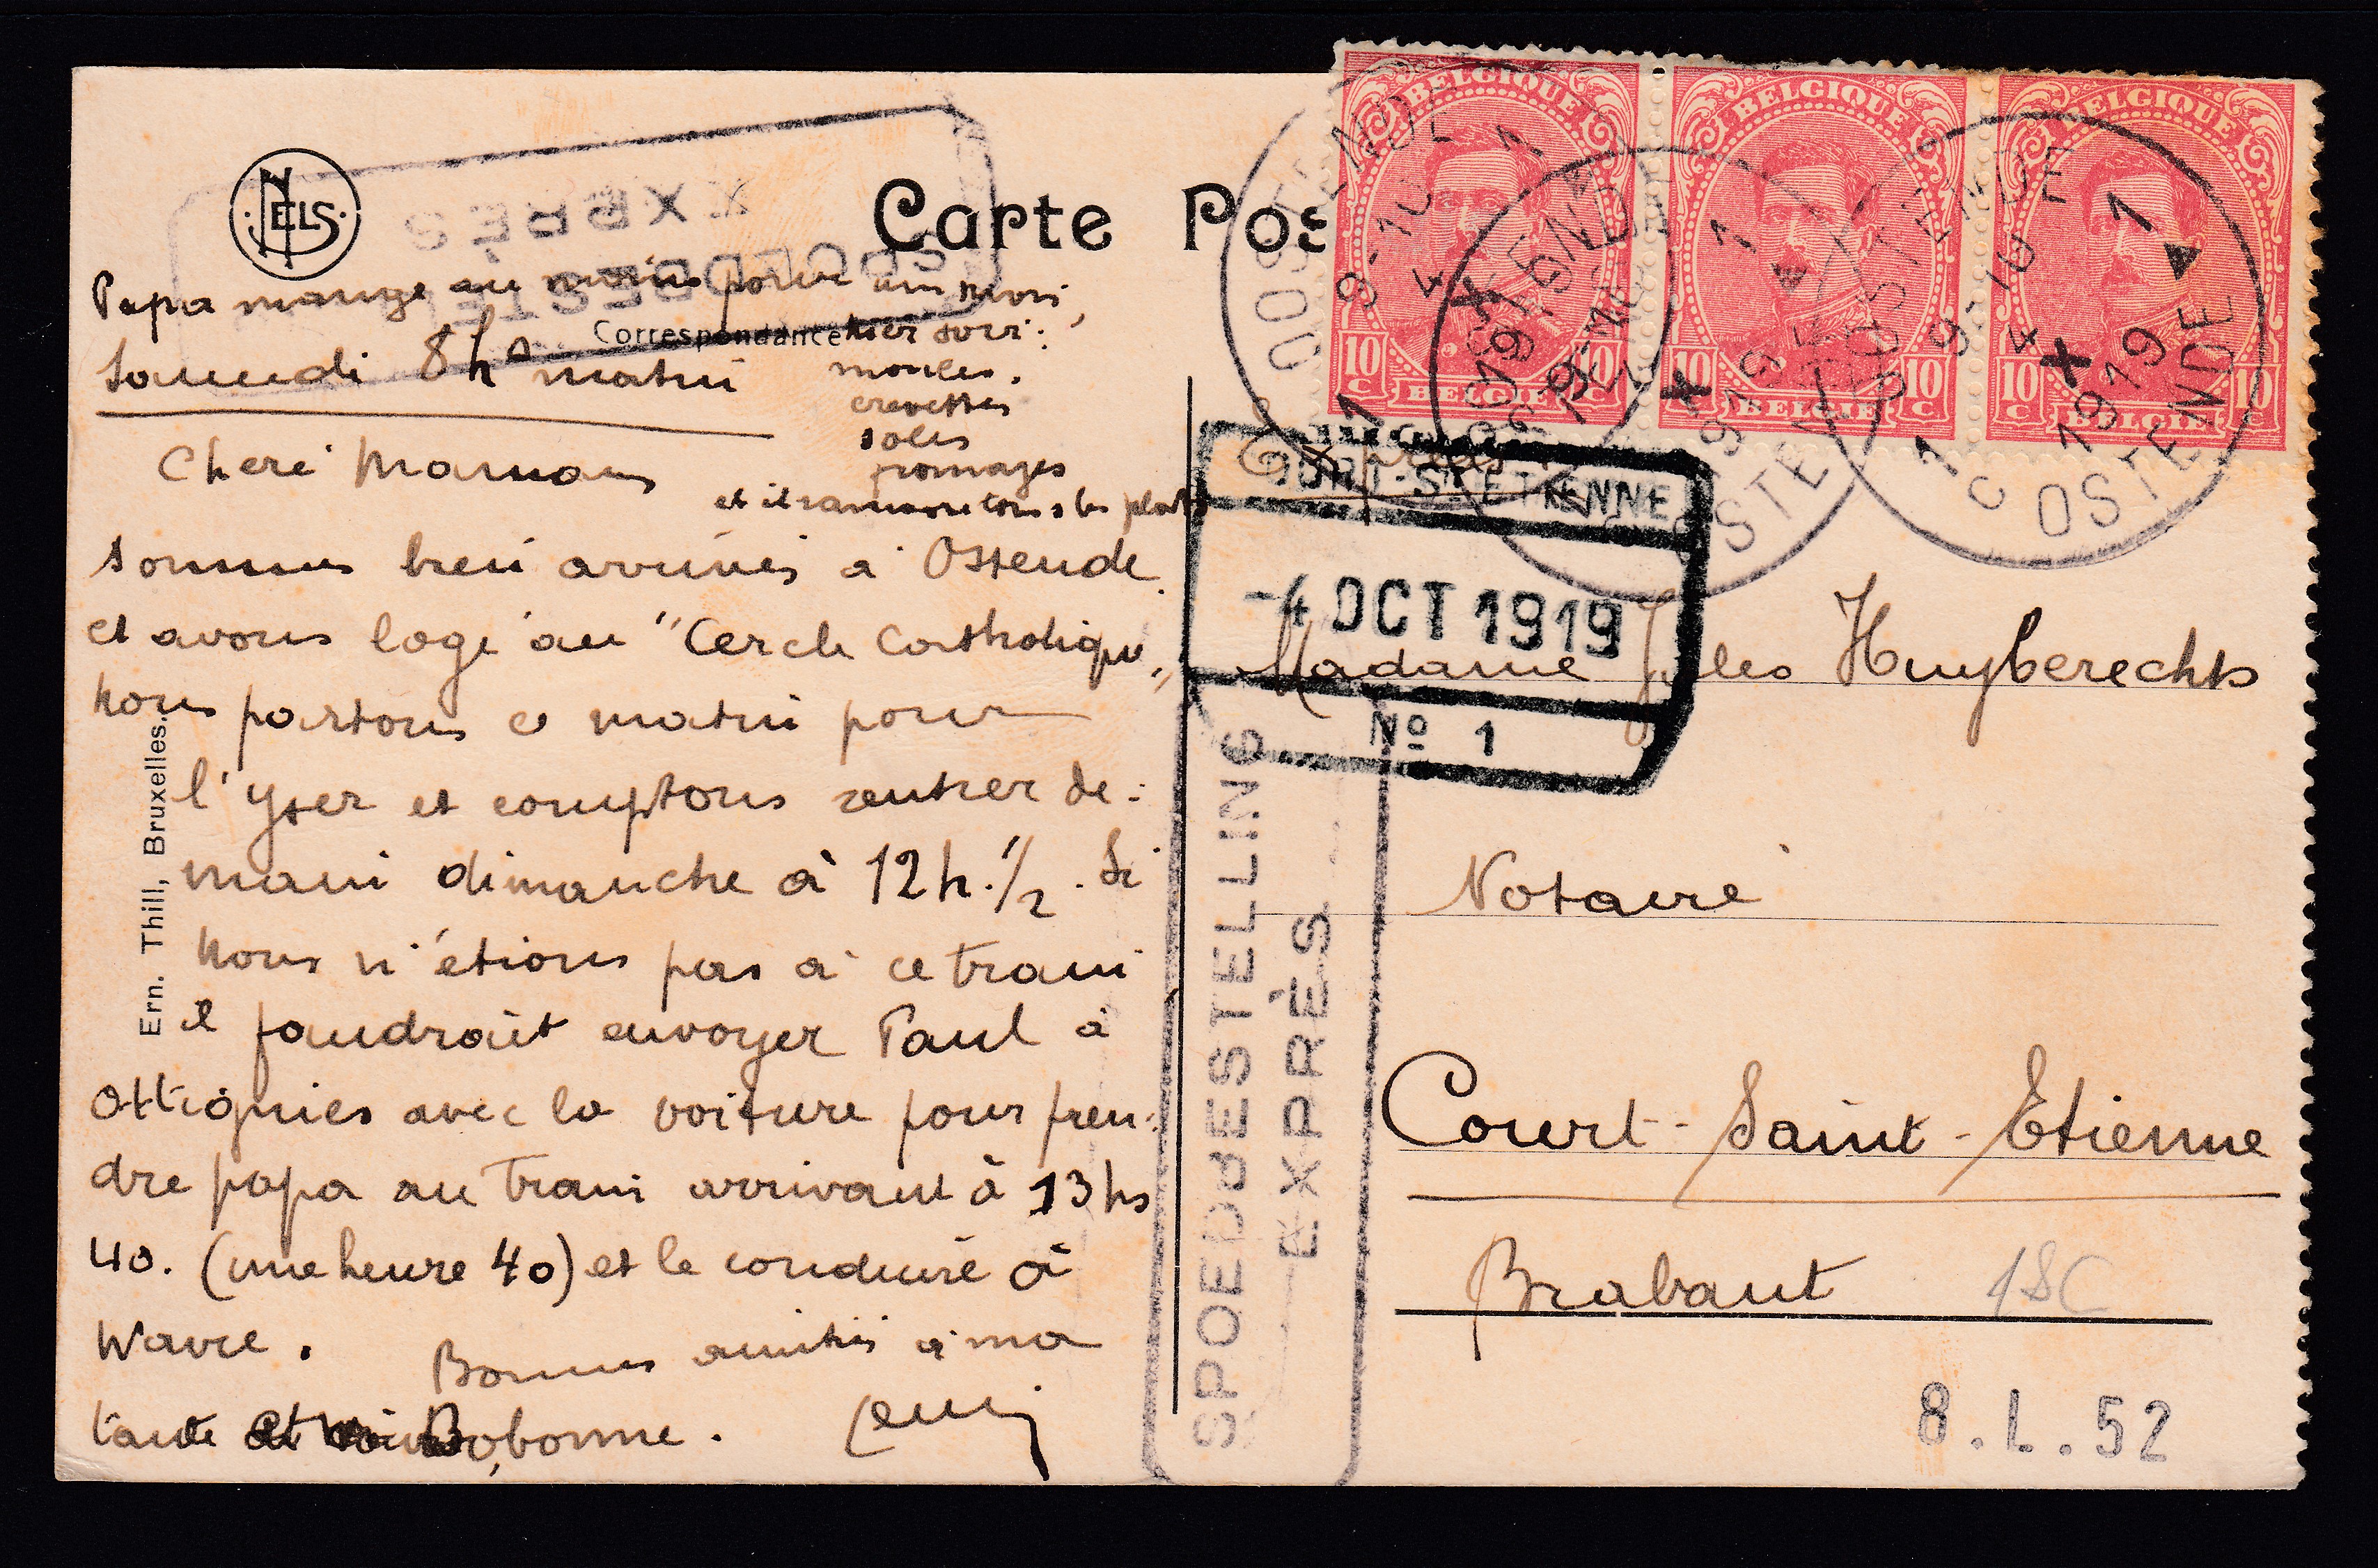 NELS
Carte Pos
Correspondance
Ern. Thill, Bruxelles.
Papa mange au moins pour
hier soir:
moules,
crevettes
soles
fromages
et il ramasse tous les plats
Samedi 8h matin
Cheré Maman
sommes bien arrivés à Ostende
et avons logé au "Cercle Catholique"
nous partons ce matin pour
l'Yser et comptons rentrer de-
main dimanche à 12h. 1/2. Si
nous n'étions pas à ce train
il faudrait envoyer Paul à
Ottignies avec la voiture pour pren-
dre papa au train arrivant à 13hs
40. (une heure 40) et le conduire à
Wavre.
Bonnes amitiés à ma
tante et Bobonne.
BELGIQUE
10 C
BELGIË
10 C
BELGIQUE
10 C
BELGIË
10 C
BELGIQUE
10 C
BELGIË
10 C
OOSTENDE
9-10
4 X
1919
1 OSTENDE 1 C
COURT-ST-ETIENNE
-4 OCT 1919
No 1
SPOEDBESTELLING
EXPRÈS
SPOEDBESTELLING
EXPRÈS
Madame Jules Huyberechts
Notaire
Court-Saint-Etienne
Brabant
8.L.52